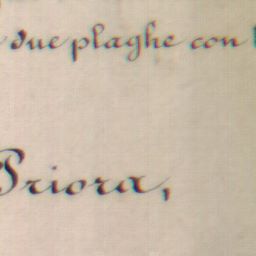 due plaghe con
Priora,